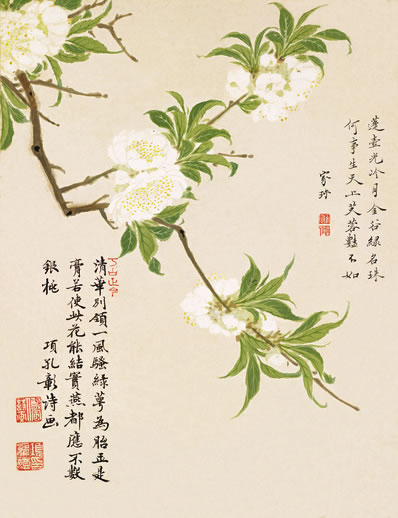 蓬壺光冷月金谷綠名珠
何事生天上芙蓉豔不如
清華別領一風騷綠萼為胎玉是
膏若使此花能結實燕都應不數
銀桃 項孔彰詩画